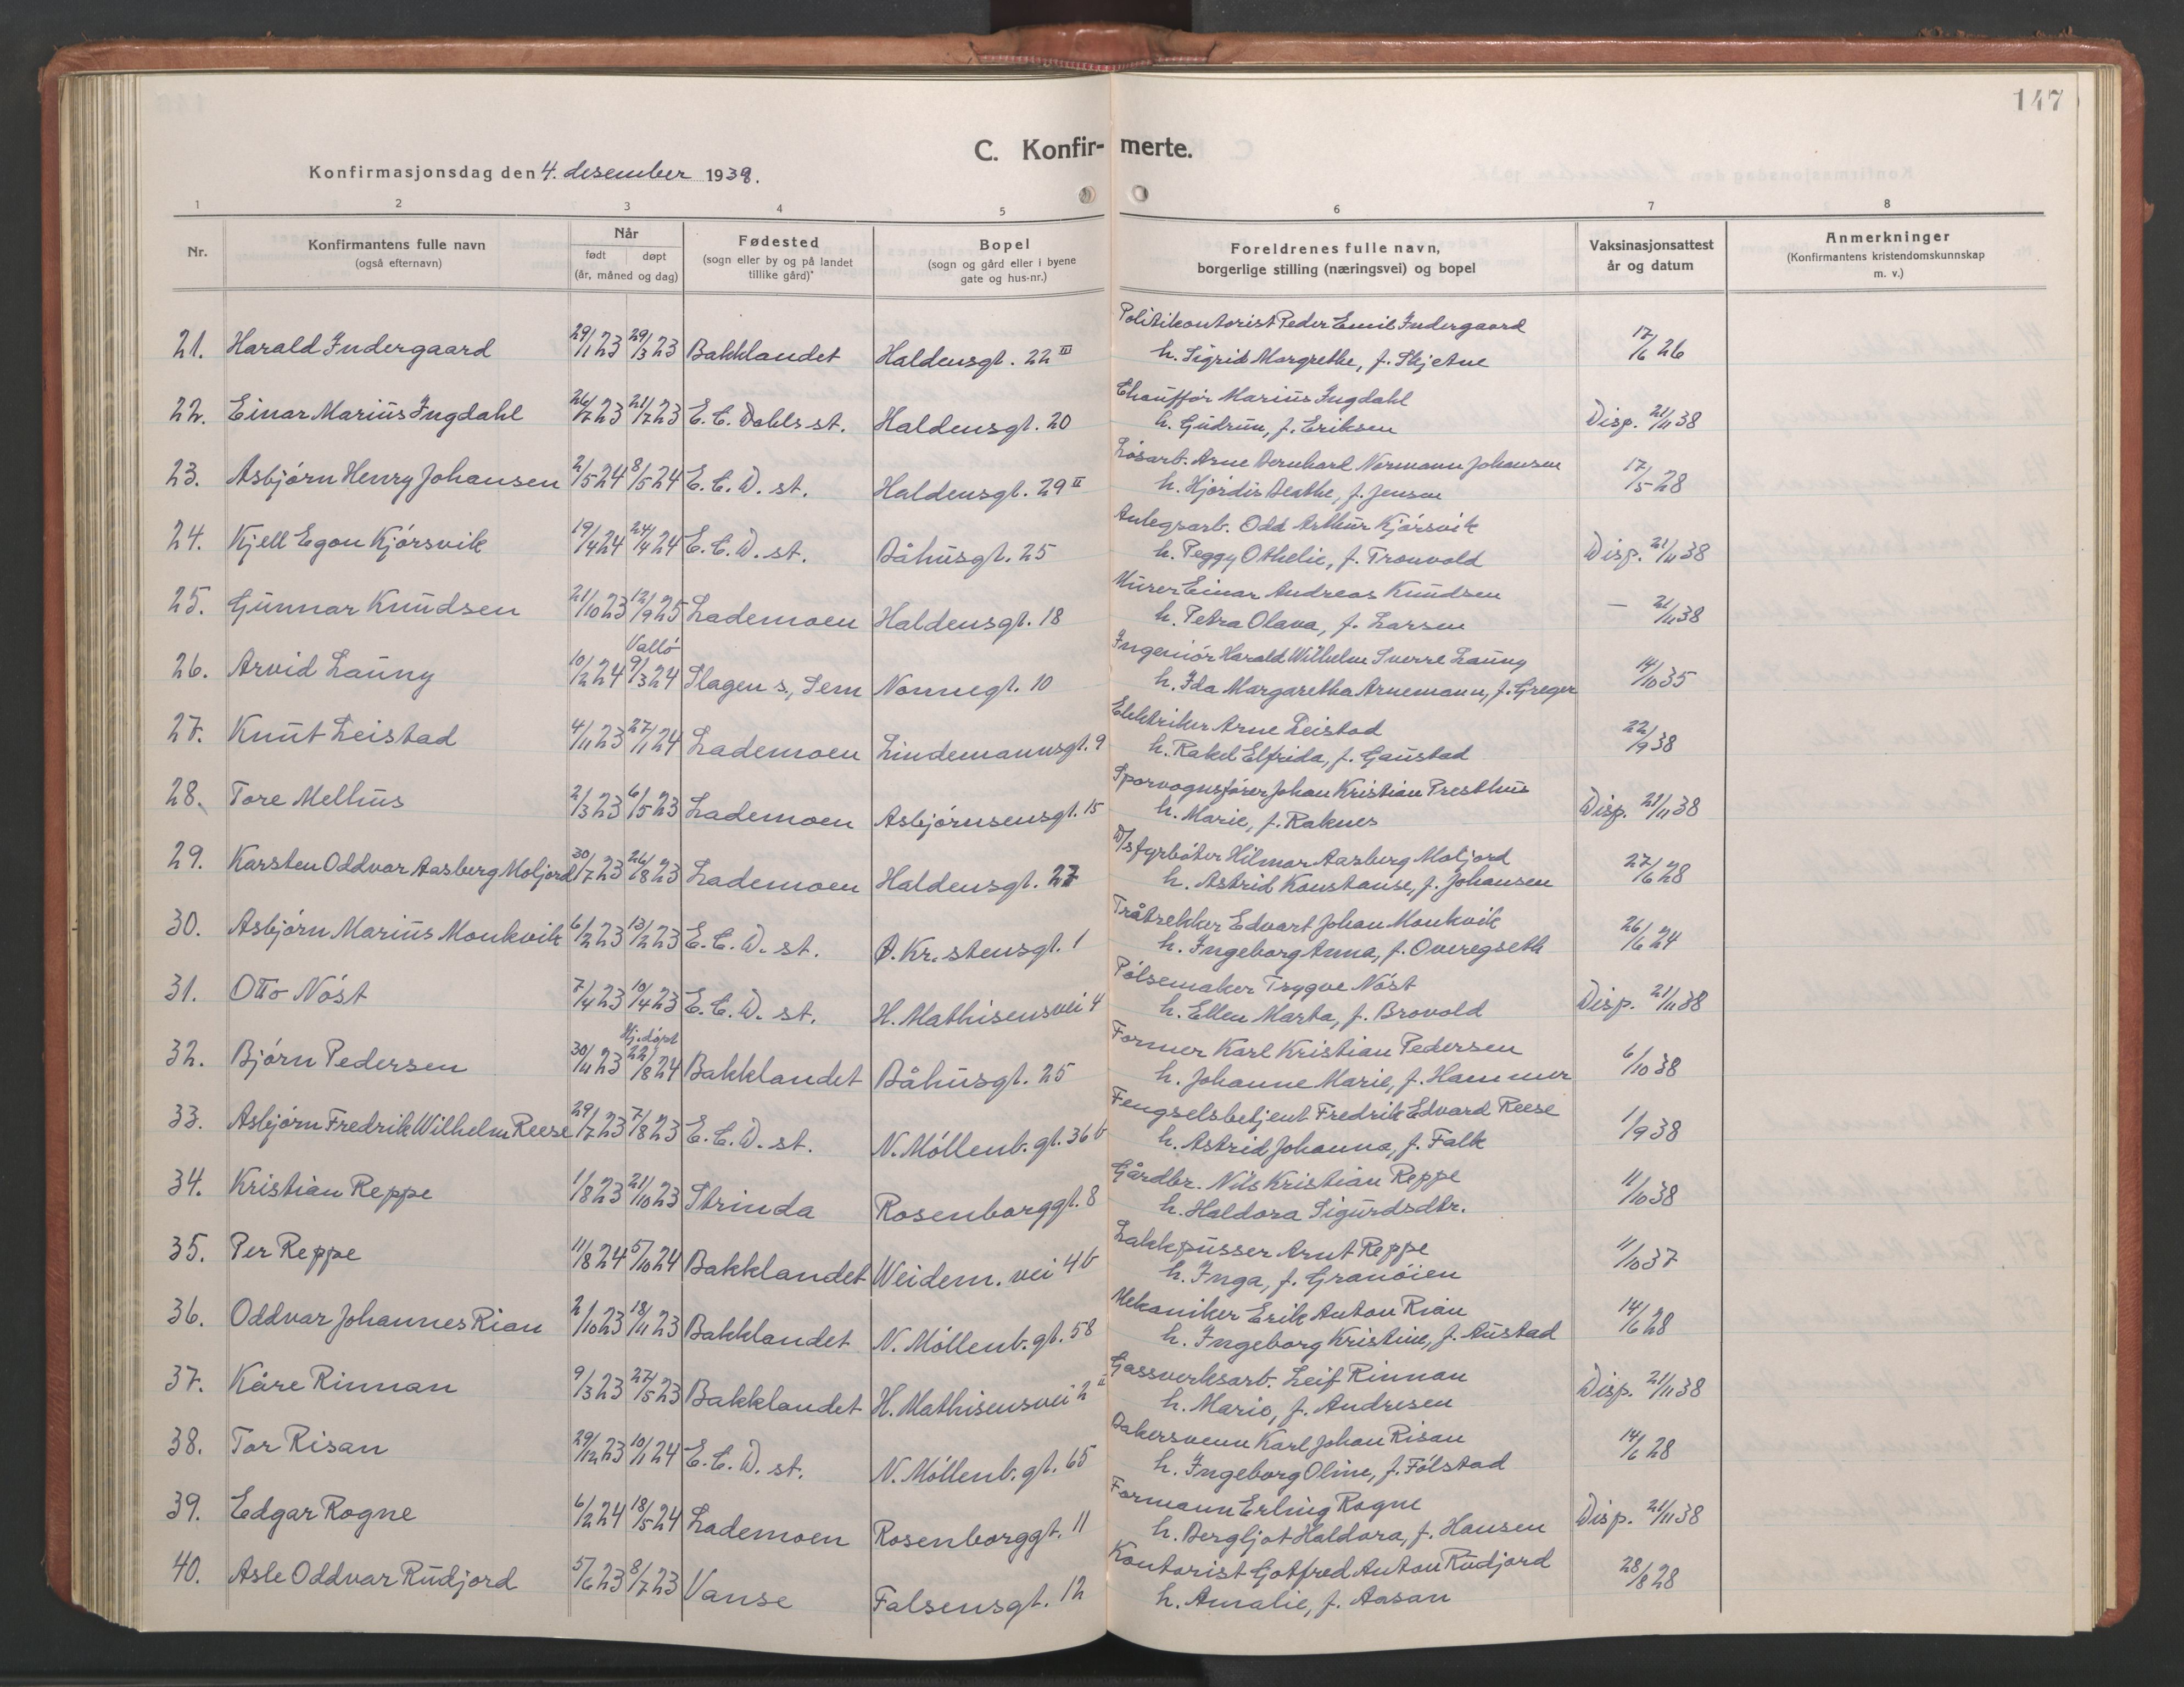 147
C. Konfirmerte.
Konfirmasjonsdag den 4. desember 1938.
1 2 3 4 5 6 7 8
Nr. Konfirmantens fulle navn (også efternavn) Når født døpt (år, måned og dag) Fødested (sogn eller by og på landet tillike gård)* Bopel (sogn og gård eller i byene gate og hus-nr.) Foreldrenes fulle navn, borgerlige stilling (næringsvei) og bopel Vaksinasjonsattest år og datum Anmerkninger (Konfirmantens kristendomskunnskap m. v.)
Politikontorist Peder Emil Indergaard
21. Harald Indergaard 29/1 23 29/3 23 Bakklandet Haldensgt. 22 III h. Sigrid Margrethe, f. Skjetne 17/6 26
Chauffør Marius Ingdahl
22. Einar Marius Ingdahl 26/7 23 21/7 23 E. C. Dahls st. Haldensgt. 20 h. Gudrun, f. Eriksen Disp. 21/11 38
Løsarb. Arne Bernhard Normann Johansen
23. Asbjørn Henry Johansen 2/5 24 8/5 24 E. C. D. st. Haldensgt. 29 II h. Hjørdis Beathe, f. Jensen 17/5 28
Anlegsarb. Odd Arthur Kjørsvik
24. Kjell Egon Kjørsvik 19/4 24 24/4 24 E. C. D. st. Båhusgt. 25 h. Peggy Othelie, f. Tronvold Disp. 21/11 38
Murer Einar Andreas Knudsen
25. Gunnar Knudsen 21/10 23 12/9 25 Lademoen Haldensgt. 18 h. Petra Olava, f. Larsen — 21/11 38
Vallø Ingeniør Harald Wilhelm Sverre Launy
26. Arvid Launy 10/2 24 9/3 24 Slagen s., Sem Nonnegt. 10 h. Ida Margaretha Arnemann, f. Greger 14/10 35
Elektriker Arne Leistad
27. Knut Leistad 4/11 23 27/1 24 Lademoen Lindemannsgt. 9 h. Rakel Elfrida, f. Gaustad 22/9 38
Sporvognsfører Johan Kristian Presthus
28. Tore Melhus 2/3 23 6/5 23 Lademoen Asbjørnsensgt. 15 h. Marie, f. Raknes Disp. 21/11 38
D/s fyrbøter Hilmar Aasberg Moljord
29. Karsten Oddvar Aasberg Moljord 30/7 23 26/8 23 Lademoen Haldensgt. 27 h. Astrid Konstanse, f. Johansen 27/6 28
Tråtrekker Edvart Johan Monkvik
30. Asbjørn Marius Monkvik 6/2 23 13/2 23 E. C. D. st. Ø. Kr. stensgt. 1 h. Ingeborg Anna, f. Overegseth 26/6 24
Pølsemaker Trygve Nøst
31. Otto Nøst 7/4 23 10/4 23 E. C. D. st. H. Mathisensvei 4 h. Ellen Marta, f. Brovold Disp. 21/11 38
Hj.døpt Former Karl Kristian Pedersen
32. Bjørn Pedersen 30/11 23 22/8 24 Bakklandet Båhusgt. 25 h. Johanne Marie, f. Hammer 6/10 38
Fengselsbetjent Fredrik Edvard Reese
33. Asbjørn Fredrik Wilhelm Reese 29/7 23 7/8 23 E. C. D. st. N. Møllenb. gt. 36 b h. Astrid Johanna, f. Falk 1/9 38
Gårdbr. Nils Kristian Reppe
34. Kristian Reppe 1/8 23 21/10 23 Strinda Rosenborggt. 8 h. Haldora Sigurdsdtr. 11/10 38
Lakkpusser Arnt Reppe
35. Per Reppe 11/8 24 5/10 24 Bakklandet Weidem. vei 4 b h. Inga, f. Granøien 11/10 37
Mekaniker Erik Anton Rian
36. Oddvar Johannes Rian 2/10 23 18/11 23 Bakklandet N. Møllenb. gt. 58 h. Ingeborg Kristine, f. Austad 14/6 28
Gassverksarb. Leif Rinnan
37. Kåre Rinnan 9/3 23 27/5 23 Bakklandet H. Mathisensvei 2 II h. Marie, f. Andresen Disp. 21/11 38
Bakersvenn Karl Johan Risan
38. Tor Risan 29/12 23 10/1 24 E. C. D. st. N. Møllenb. gt. 65 h. Ingeborg Oline, f. Følstad 14/6 28
Formann Erling Rogne
39. Edgar Rogne 6/2 24 18/5 24 Lademoen Rosenborggt. 11 h. Bergljot Haldora, f. Hansen Disp. 21/11 38
Kontorist Gotfred Anton Rudjord
40. Asle Oddvar Rudjord 5/6 23 8/7 23 Vanse Falsensgt. 12 h. Amalie, f. Aasan 28/8 28